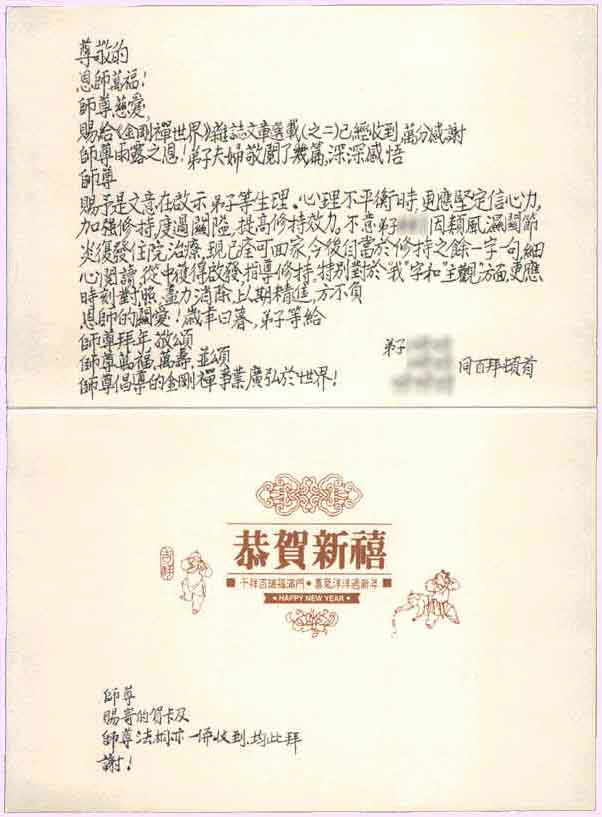 尊敬的
恩師萬福!
師尊慈愛,
賜給《金剛禪世界》雜誌文章選載(之二)已經收到 萬分感謝
師尊雨露之恩! 弟子夫婦敬閱了幾篇,深深感悟
師尊
賜予是文意在啟示弟子等生理。心理不平衡時,更應堅定信心力,
加强修持,度過關隘,提高修持效力,不意弟子 因類風濕關節
炎復發住院治療,現已痊可回家,今後自當於修持之餘一字一句,細
心閱讀,從中獲得啟發指導修持,特別對於"我"字和"主觀"方面,更應
時刻對照,盡力消除,以期精進,方不負
恩師的關愛! 歲聿曰暮,弟子等給
師尊拜年,敬頌
師尊萬福,萬壽,並頌
師尊倡導的金剛禪事業廣弘於世界!
弟子
同百拜頓首
恭賀新禧
吉祥
千祥百瑞福滿門 • 喜氣洋洋過新年
★ HAPPY NEW YEAR ★
師尊
賜寄的賀卡及
師尊法相亦一併收到,均此拜
謝!